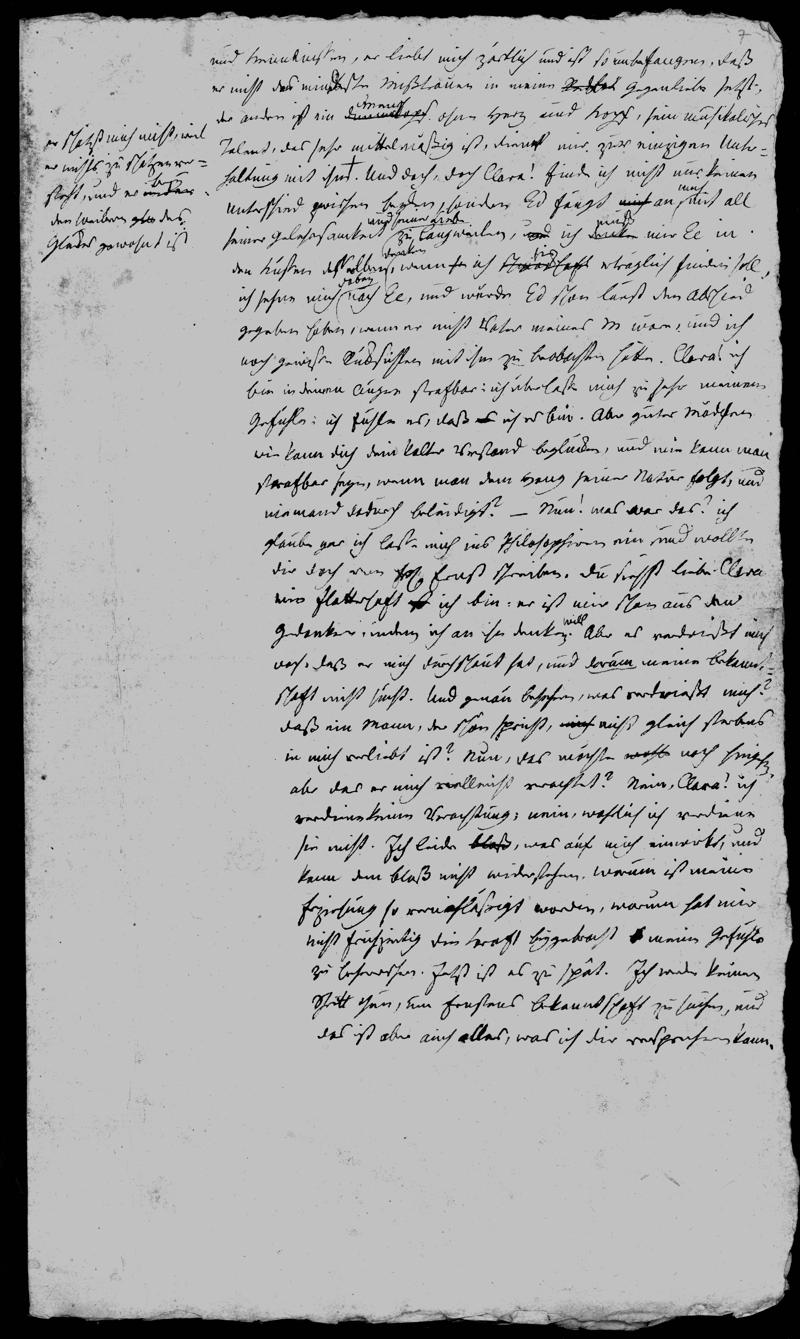 7
und Kenntnissen, er liebt mich zärtlich und ist so unbefangen, daß
er nicht das mindeste Mißtrauen in meine Gegenliebe setzt,
der andere ist ein ohne Herz und Kopf, sein musikalisches
Talent, das sehr mittelmäßig ist, dient mir zur einzigen Unter=
haltung mit ihm†. Und doch, doch Clara! finde ich nicht nur keinen
Unterschied zwischen beyden, sondern Ed fängt an mich mit all
seiner Gelehrsamkeit und seiner Liebe zu langweilen, und ich muß mir Ee in
den Küssen desselben denken, wenn ich sie erträglich finden soll,
ich sehne mich nach Ee, und würde Ed schon längst den Abschied
gegeben haben, wenn er nicht Vater meines M wäre, und ich
noch gewisse Rücksichten mit ihm zu beobachten hätte. Clara! ich
bin in deinen Augen strafbar: ich überlasse mich zu sehr meinem
Gefühle: ich fühle es, daß ich es bin. Aber gutes Mädchen
wie kann dich dein kalter Verstand beglücken, und wie kann man
strafbar seyn, wenn man dem Hang seiner Natur folgt, und
niemand dadurch beleidigt? — Nun! was war das? ich
glaube gar ich lasse mich ins Philosophiren ein und wollte
dir doch von Ernst schreiben. Du siehst liebe Clara
wie flatterhaft ich bin: er ist mir schon aus den
Gedanken, indem ich an ihn denken will. Aber es verdrießt mich
doch, daß er mich durchschaut hat, und darum meine Bekannt=
schaft nicht sucht. Und genau besehen, was verdrießt mich?
daß ein Mann, der schön spricht, nicht gleich sterbens
in mich verliebt ist? Nun, das möchte noch hingehen,
aber daß er mich vielleicht verachtet? Nein, Clara! ich
verdiene keine Verachtung: nein, wahrlich ich verdiene
sie nicht. Ich leide bloß, was auf mich einwirkt, und
kann dem bloß nicht widerstehen. Warum ist meine
Erziehung so vernachlässigt worden, warum hat man
nicht frühzeitig die Kraft beygebracht meine Gefühle
zu beherrschen. Jetzt ist es zu spät. Ich werde keinen
Schritt thun, um Ernstens Bekanntschaft zu suchen, und
das ist aber auch alles, was ich dir versprechen kann.
er schätzt mich nicht, weil
er nichts zu schätzen ver=
steht, und er bey
den Weibern des
Glückes gewohnt ist